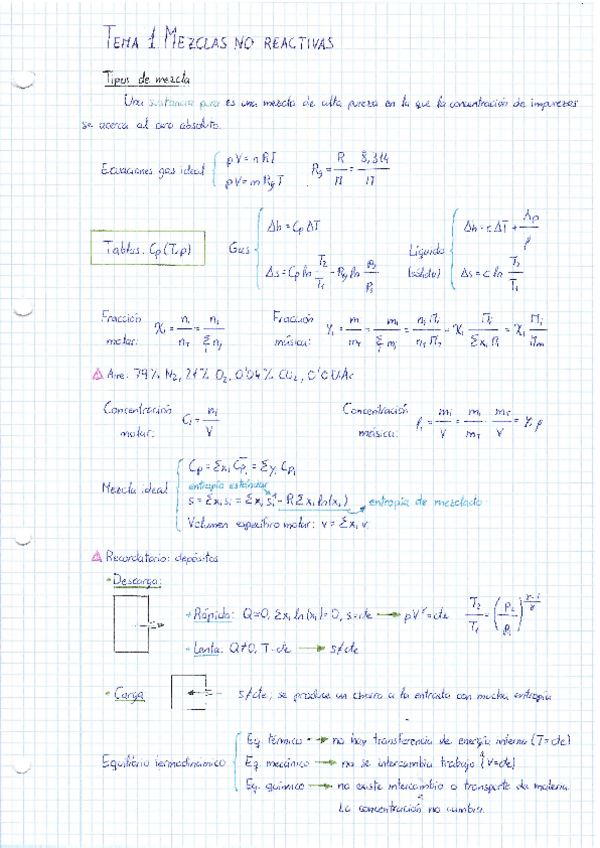 TEMA 1 MEZCLAS NO REACTIVAS
Tipos de mezcla
Una sustancia pura es una mezcla de alta pureza en la que la concentración de impurezas
se acerca al cero absoluto.
Ecuaciones gas ideal { pV = nRT
pV = m Rg T
Rg = R/M = 8,314/M
Tablas: Cp(T,p)
Gas { Δh = Cp ΔT
Δs = Cp ln T2/T1 - Rg ln p2/p1
Líquido (sólido) { Δh = c ΔT + Δp/ρ
Δs = c ln T2/T1
Fracción molar: Xi = ni/nT = ni/Σ nj
Fracción másica: yi = mi/mT = mi/Σ mj = ni Mi/nT MT = Xi Mi/Σ xi Mi = Xi Mi/Mm
Aire: 79% N2, 21% O2, 0'04% CO2, 0'01 Ar
Concentración molar: Ci = ni/V
Concentración másica: ρi = mi/V = mi/mT mT/V = yi ρ
Mezcla ideal { Cp = Σxi Cpi = Σyi Cpi
entropía estándar
s = Σxi si = Σxi si* - RΣxi ln(xi) → entropía de mezclado
Volumen específico molar: v = Σxi vi
Recordatorio: depósitos
• Descarga:
→ Rápida: Q=0, Σxi ln(xi)=0, s=cte → pVᵞ=cte T2/T1 = (p2/p1)^(γ-1/γ)
→ Lenta: Q≠0, T=cte → s≠cte
• Carga s≠cte, se produce un chorro a la entrada con mucha entropía
Equilibrio termodinámico { Eq. térmico → no hay transferencia de energía interna (T=cte)
Eq. mecánico → no se intercambia trabajo (V=cte)
Eq. químico → no existe intercambio o transporte de materia.
La concentración no cambia.